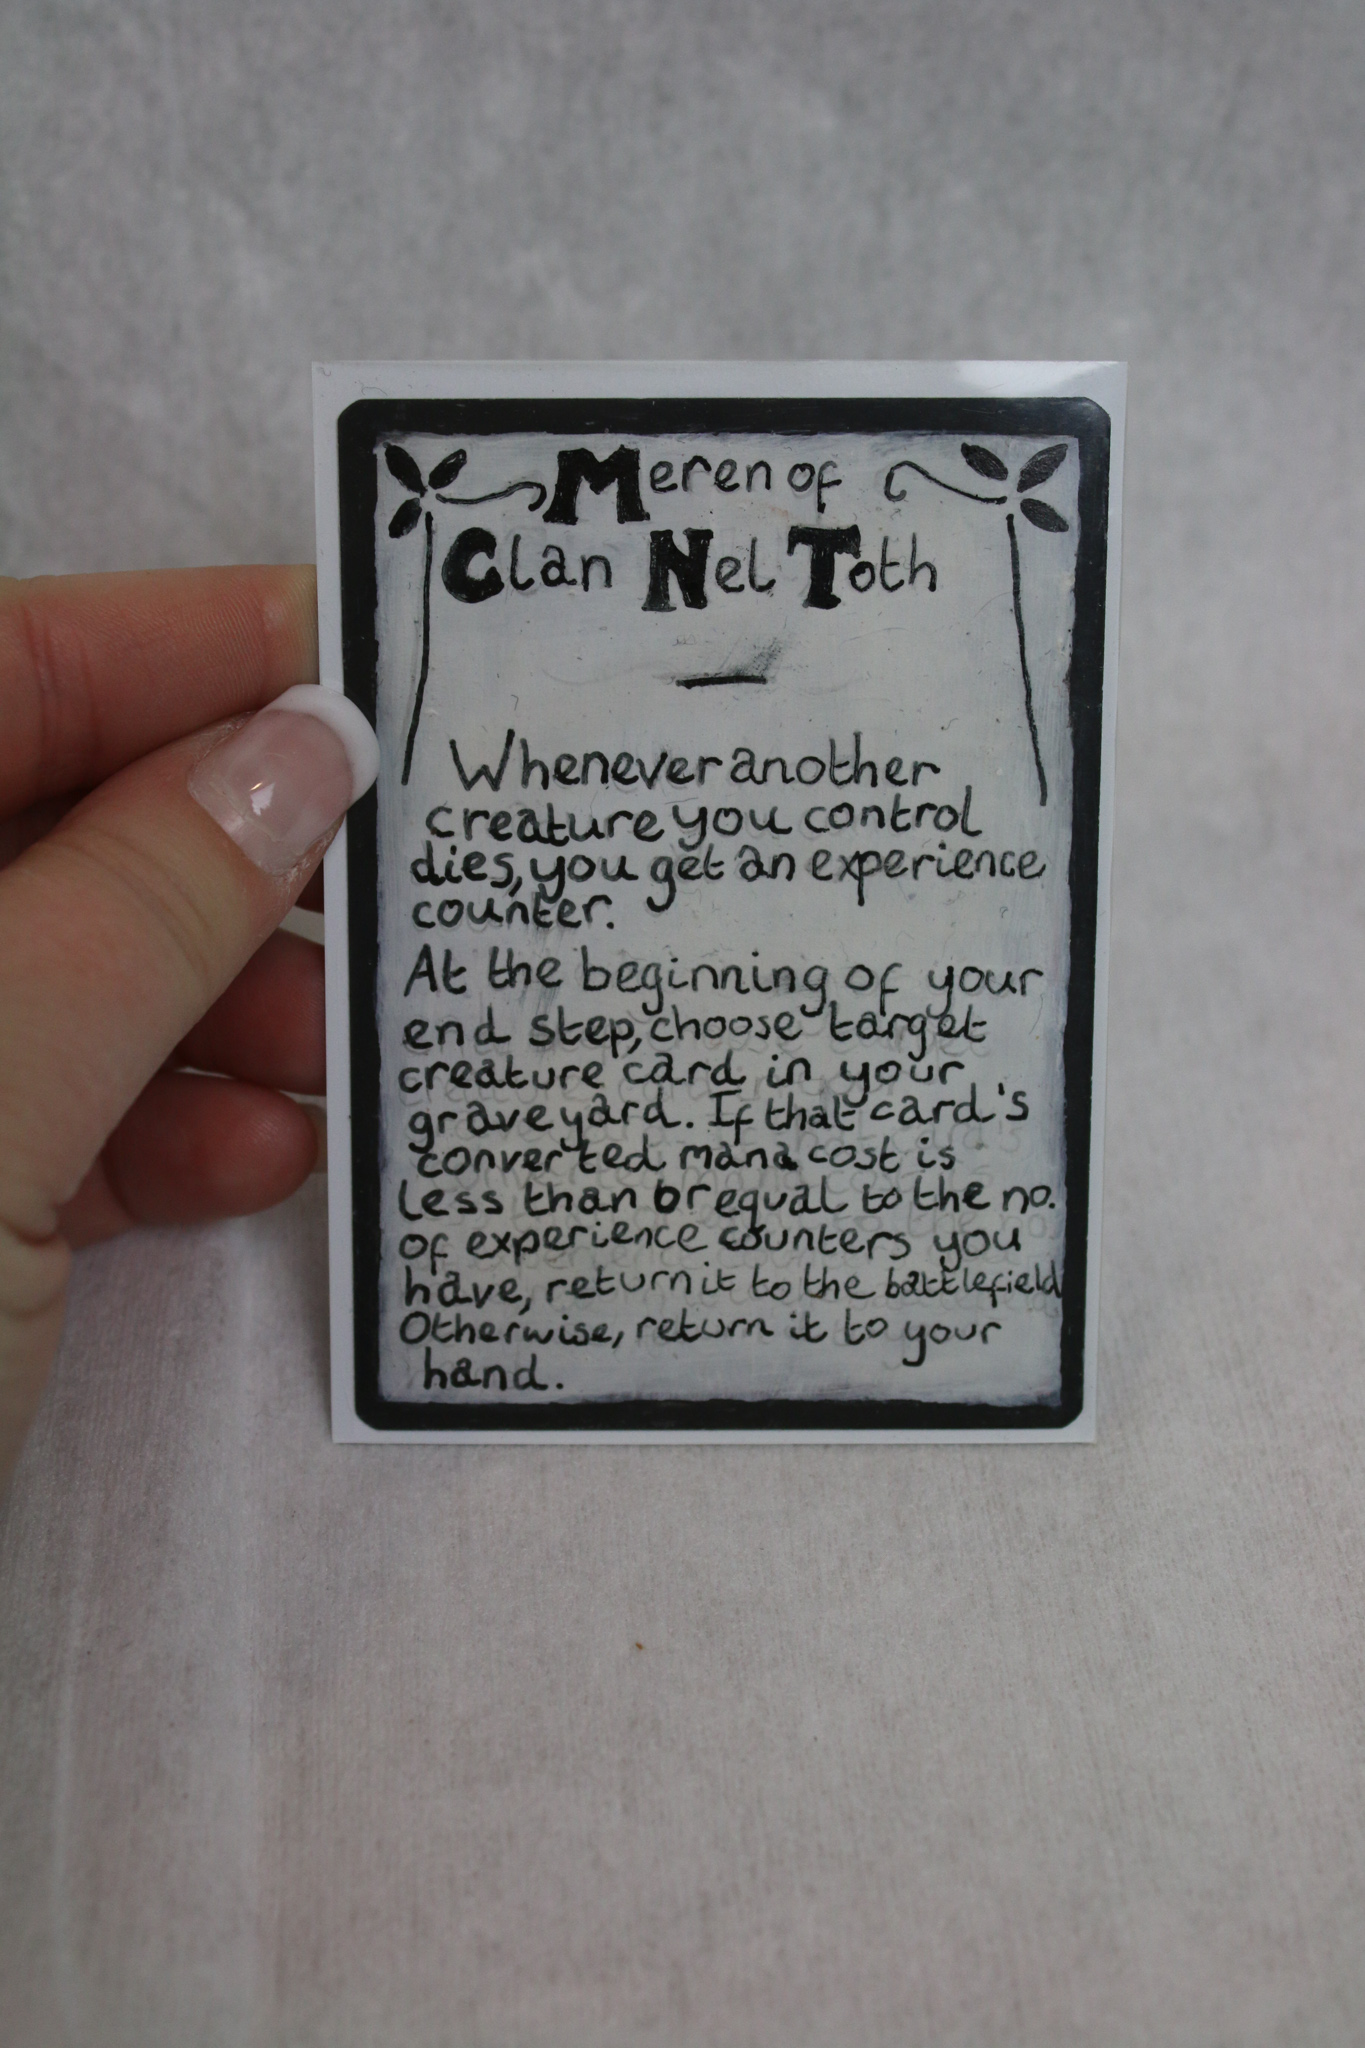 Meren of
Clan Nel Toth
Whenever another
creature you control
dies, you get an experience
counter.
At the beginning of your
end step, choose target
creature card in your
graveyard. If that card's
converted mana cost is
less than or equal to the no.
of experience counters you
have, return it to the battlefield
Otherwise, return it to your
hand.